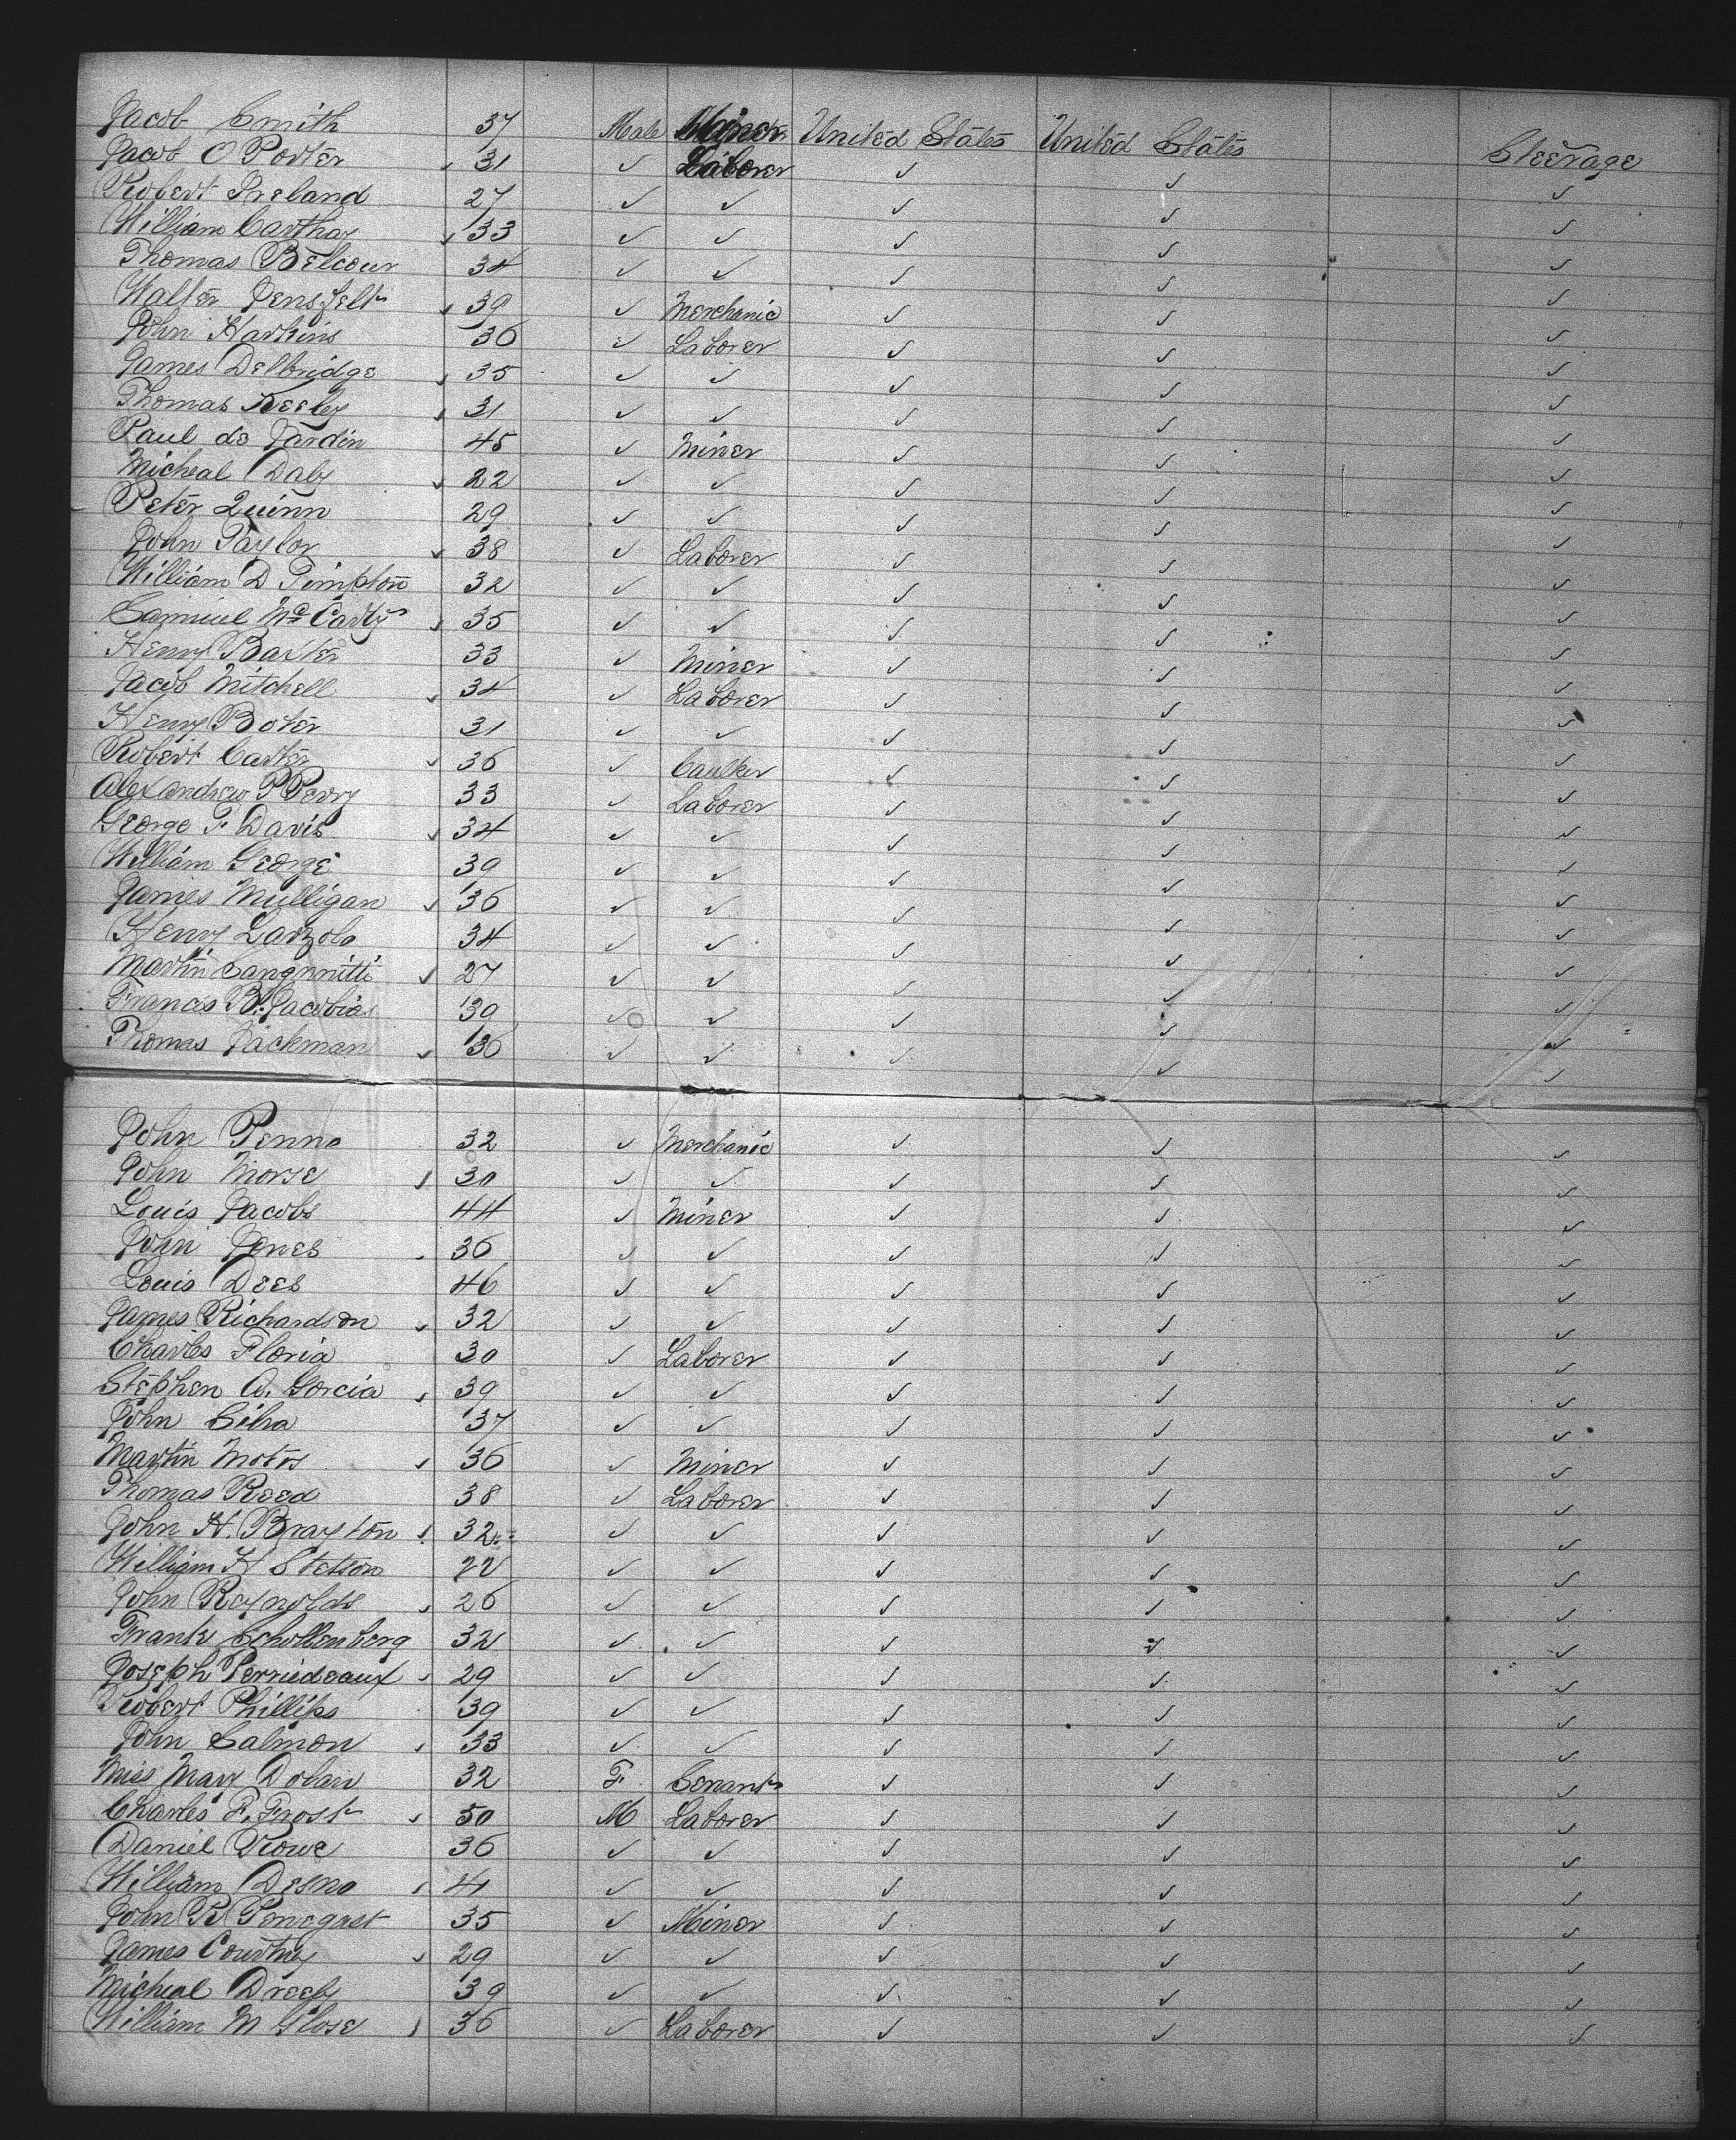 Jacob Smith 37 Male Miner United States United States Steerage
Jacob O Porter 31 ✓ Laborer ✓ ✓ ✓
Robert Ireland 27 ✓ ✓ ✓ ✓ ✓
William Carthay 33 ✓ ✓ ✓ ✓ ✓
Thomas Belcour 34 ✓ ✓ ✓ ✓ ✓
Walter 39 ✓ Merchanic ✓ ✓ ✓
John Harkins 36 ✓ Laborer ✓ ✓ ✓
James Delbridge 35 ✓ ✓ ✓ ✓ ✓
Thomas Keeley 31 ✓ ✓ ✓ ✓ ✓
Paul de Jardin 45 ✓ Miner ✓ ✓ ✓
Micheal Daly 22 ✓ ✓ ✓ ✓ ✓
Peter Quinn 29 ✓ ✓ ✓ ✓ ✓
John Taylor 38 ✓ Laborer ✓ ✓ ✓
William D Timpton 32 ✓ ✓ ✓ ✓ ✓
Samuel Mc Carty 35 ✓ ✓ ✓ ✓ ✓
Henry Baxter 33 ✓ Miner ✓ ✓ ✓
Jacob Mitchell 34 ✓ Laborer ✓ ✓ ✓
Henry Boter 31 ✓ ✓ ✓ ✓ ✓
Robert Carter 36 ✓ Caulker ✓ ✓ ✓
Alexandrew P Perry 33 ✓ Laborer ✓ ✓ ✓
George F. Davis 34 ✓ ✓ ✓ ✓ ✓
William George 39 ✓ ✓ ✓ ✓ ✓
James Mulligan 36 ✓ ✓ ✓ ✓ ✓
Henry Larzolo 34 ✓ ✓ ✓ ✓ ✓
Martin 27 ✓ ✓ ✓ ✓ ✓
Francis B. Jacobias 39 ✓ ✓ ✓ ✓ ✓
Thomas Jackman 36 ✓ ✓ ✓ ✓ ✓
John Penno 32 ✓ Merchanic ✓ ✓ ✓
John Morse 30 ✓ ✓ ✓ ✓ ✓
Louis Jacobs 44 ✓ Miner ✓ ✓ ✓
John Jones 36 ✓ ✓ ✓ ✓ ✓
Louis Dees 46 ✓ ✓ ✓ ✓ ✓
James Richardson 32 ✓ ✓ ✓ ✓ ✓
Charles Floria 30 ✓ Laborer ✓ ✓ ✓
Stephen A. Gorcia 39 ✓ ✓ ✓ ✓ ✓
John Silva 37 ✓ ✓ ✓ ✓ ✓
Martin Motos 36 ✓ Miner ✓ ✓ ✓
Thomas Reed 38 ✓ Laborer ✓ ✓ ✓
John H. Brayton 32 ✓ ✓ ✓ ✓ ✓
William H Stetson 22 ✓ ✓ ✓ ✓ ✓
John Reynolds 26 ✓ ✓ ✓ ✓ ✓
Frank Schollenberg 32 ✓ ✓ ✓ ✓ ✓
Joseph Perriedeaux 29 ✓ ✓ ✓ ✓ ✓
Robert Phillips 39 ✓ ✓ ✓ ✓ ✓
John Salmon 33 ✓ ✓ ✓ ✓ ✓
Miss Mary Dolan 32 F. Servant ✓ ✓ ✓
Charles F. Frost 50 M Laborer ✓ ✓ ✓
Daniel Rowe 36 ✓ ✓ ✓ ✓ ✓
William Desmo 41 ✓ ✓ ✓ ✓ ✓
John R 35 ✓ Miner ✓ ✓ ✓
James Courtney 29 ✓ ✓ ✓ ✓ ✓
Micheal Dreely 39 ✓ ✓ ✓ ✓ ✓
William M Glose 36 ✓ Laborer ✓ ✓ ✓